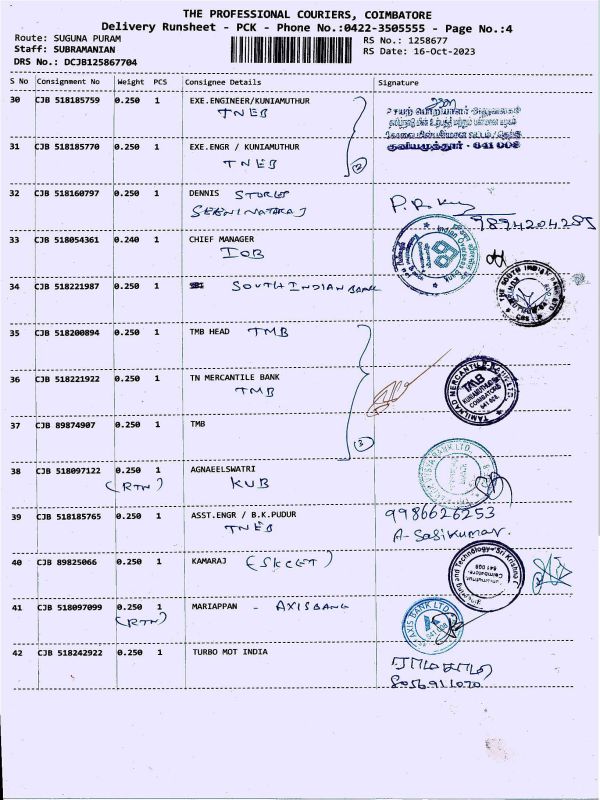 THE PROFESSIONAL COURIERS, COIMBATORE
Delivery Runsheet - PCK - Phone No.:0422-3505555 - Page No.:4
Route: SUGUNA PURAM
RS No.: 1258677
Staff: SUBRAMANIAN
RS Date: 16-Oct-2023
DRS No.: DCJB125867704
S No Consignment No Weight PCS Consignee Details Signature
30 CJB 518185759 0.250 1 EXE.ENGINEER/KUNIAMUTHUR
TNEB
குனியமுத்தூர் - 641 008
31 CJB 518185770 0.250 1 EXE.ENGR / KUNIAMUTHUR
TNEB
2
32 CJB 518160797 0.250 1 DENNIS STORES
SEENINATARAJ
9894204285
33 CJB 518054361 0.240 1 CHIEF MANAGER
IOB
Indian Overseas Bank
34 CJB 518221987 0.250 1 SOUTH INDIAN BANK
THE SOUTH INDIAN BANK LTD
35 CJB 518200894 0.250 1 TMB HEAD TMB
36 CJB 518221922 0.250 1 TN MERCANTILE BANK
TMB
TAMILNAD MERCANTILE BANK LTD
TMB
KUNIAMUTHUR
COIMBATORE
641 008
37 CJB 89874907 0.250 1 TMB
3
38 CJB 518097122 0.250 1 AGNAEELSWATRI
(RTN) KUB
39 CJB 518185765 0.250 1 ASST.ENGR / B.K.PUDUR
TNEB
9986626253
A-Sasikumar.
40 CJB 89825066 0.250 1 KAMARAJ (SKCET)
and Technology - Sri Krishna
Coimbatore-
641 008
41 CJB 518097099 0.250 1 MARIAPPAN - AXIS BANK
(RTN)
AXIS BANK LTD
641 008
42 CJB 518242922 0.250 1 TURBO MOT INDIA
8056911070